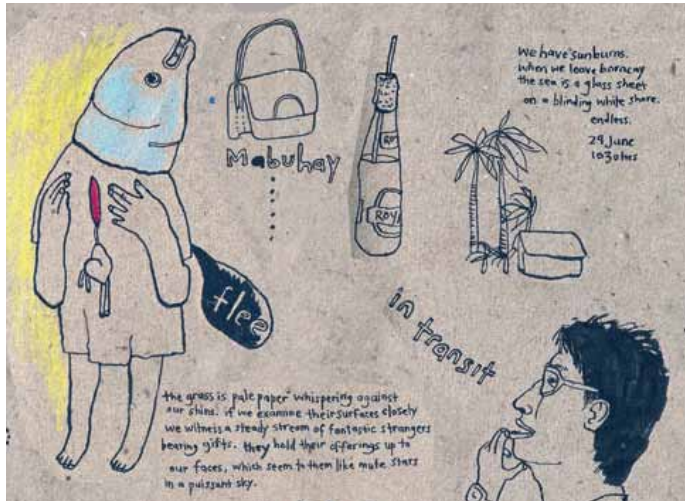 we have sunburns.
when we leave boracay
the sea is a glass sheet
on a blinding white shore.
endless.
29 June
1030hrs
Mabuhay
ROY
ROY
flee
in transit
the grass is pale paper whispering against
our shins. if we examine their surfaces closely
we witness a steady stream of fantastic strangers
bearing gifts. they hold their offerings up to
our faces, which seem to them like mute stars
in a puissant sky.